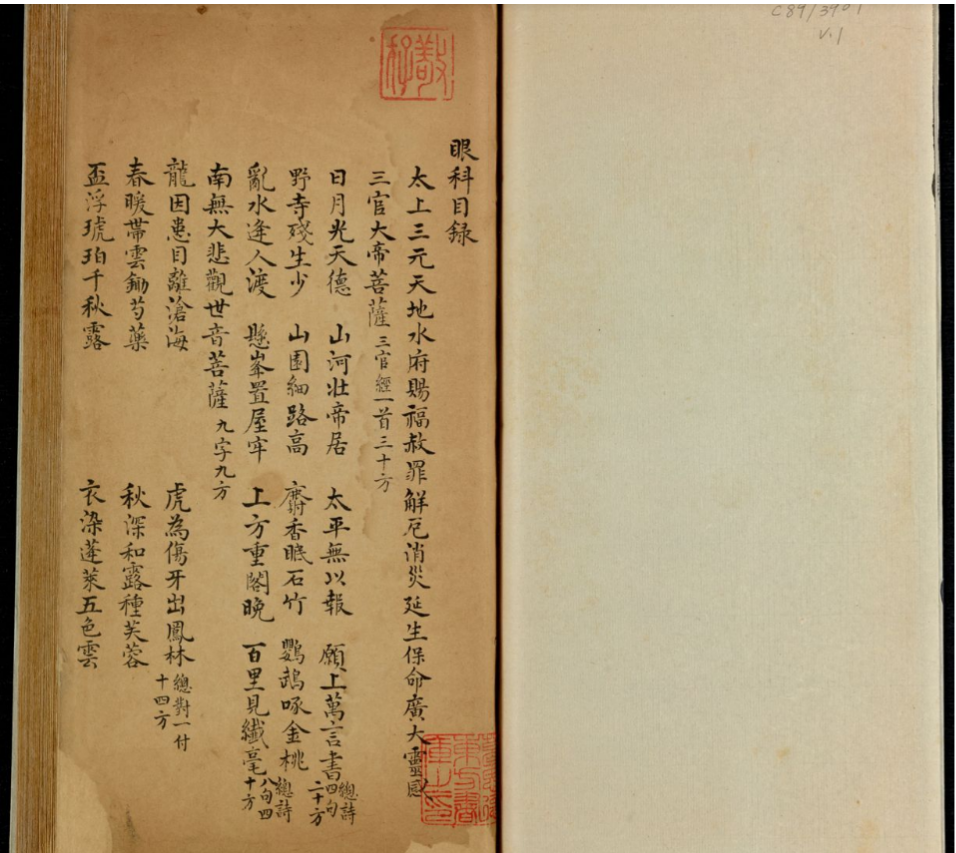 C89/3901
V.1
眼科目録
太上三元天地水府賜福赦罪解厄消災延生保命廣大靈感
三官大帝菩薩 三官經一首三十方
日月光天德 山河壯帝居 太平無以報 願上萬言書 總詩四句二十方
野寺殘生少 山園細路高 麝香眠石竹 鸚鵡啄金桃
亂水逢人渡 懸峯置屋牢 上方重閣晚 百里見纖毫 總詩八句四十方
南無大悲觀世音菩薩 九字九方
龍因患目離滄海 虎為傷牙出鳳林 總對一付十四方
春暖帶雲鋤芍藥 秋深和露種芙蓉
盃浮琥珀千秋露 衣染蓬萊五色雲